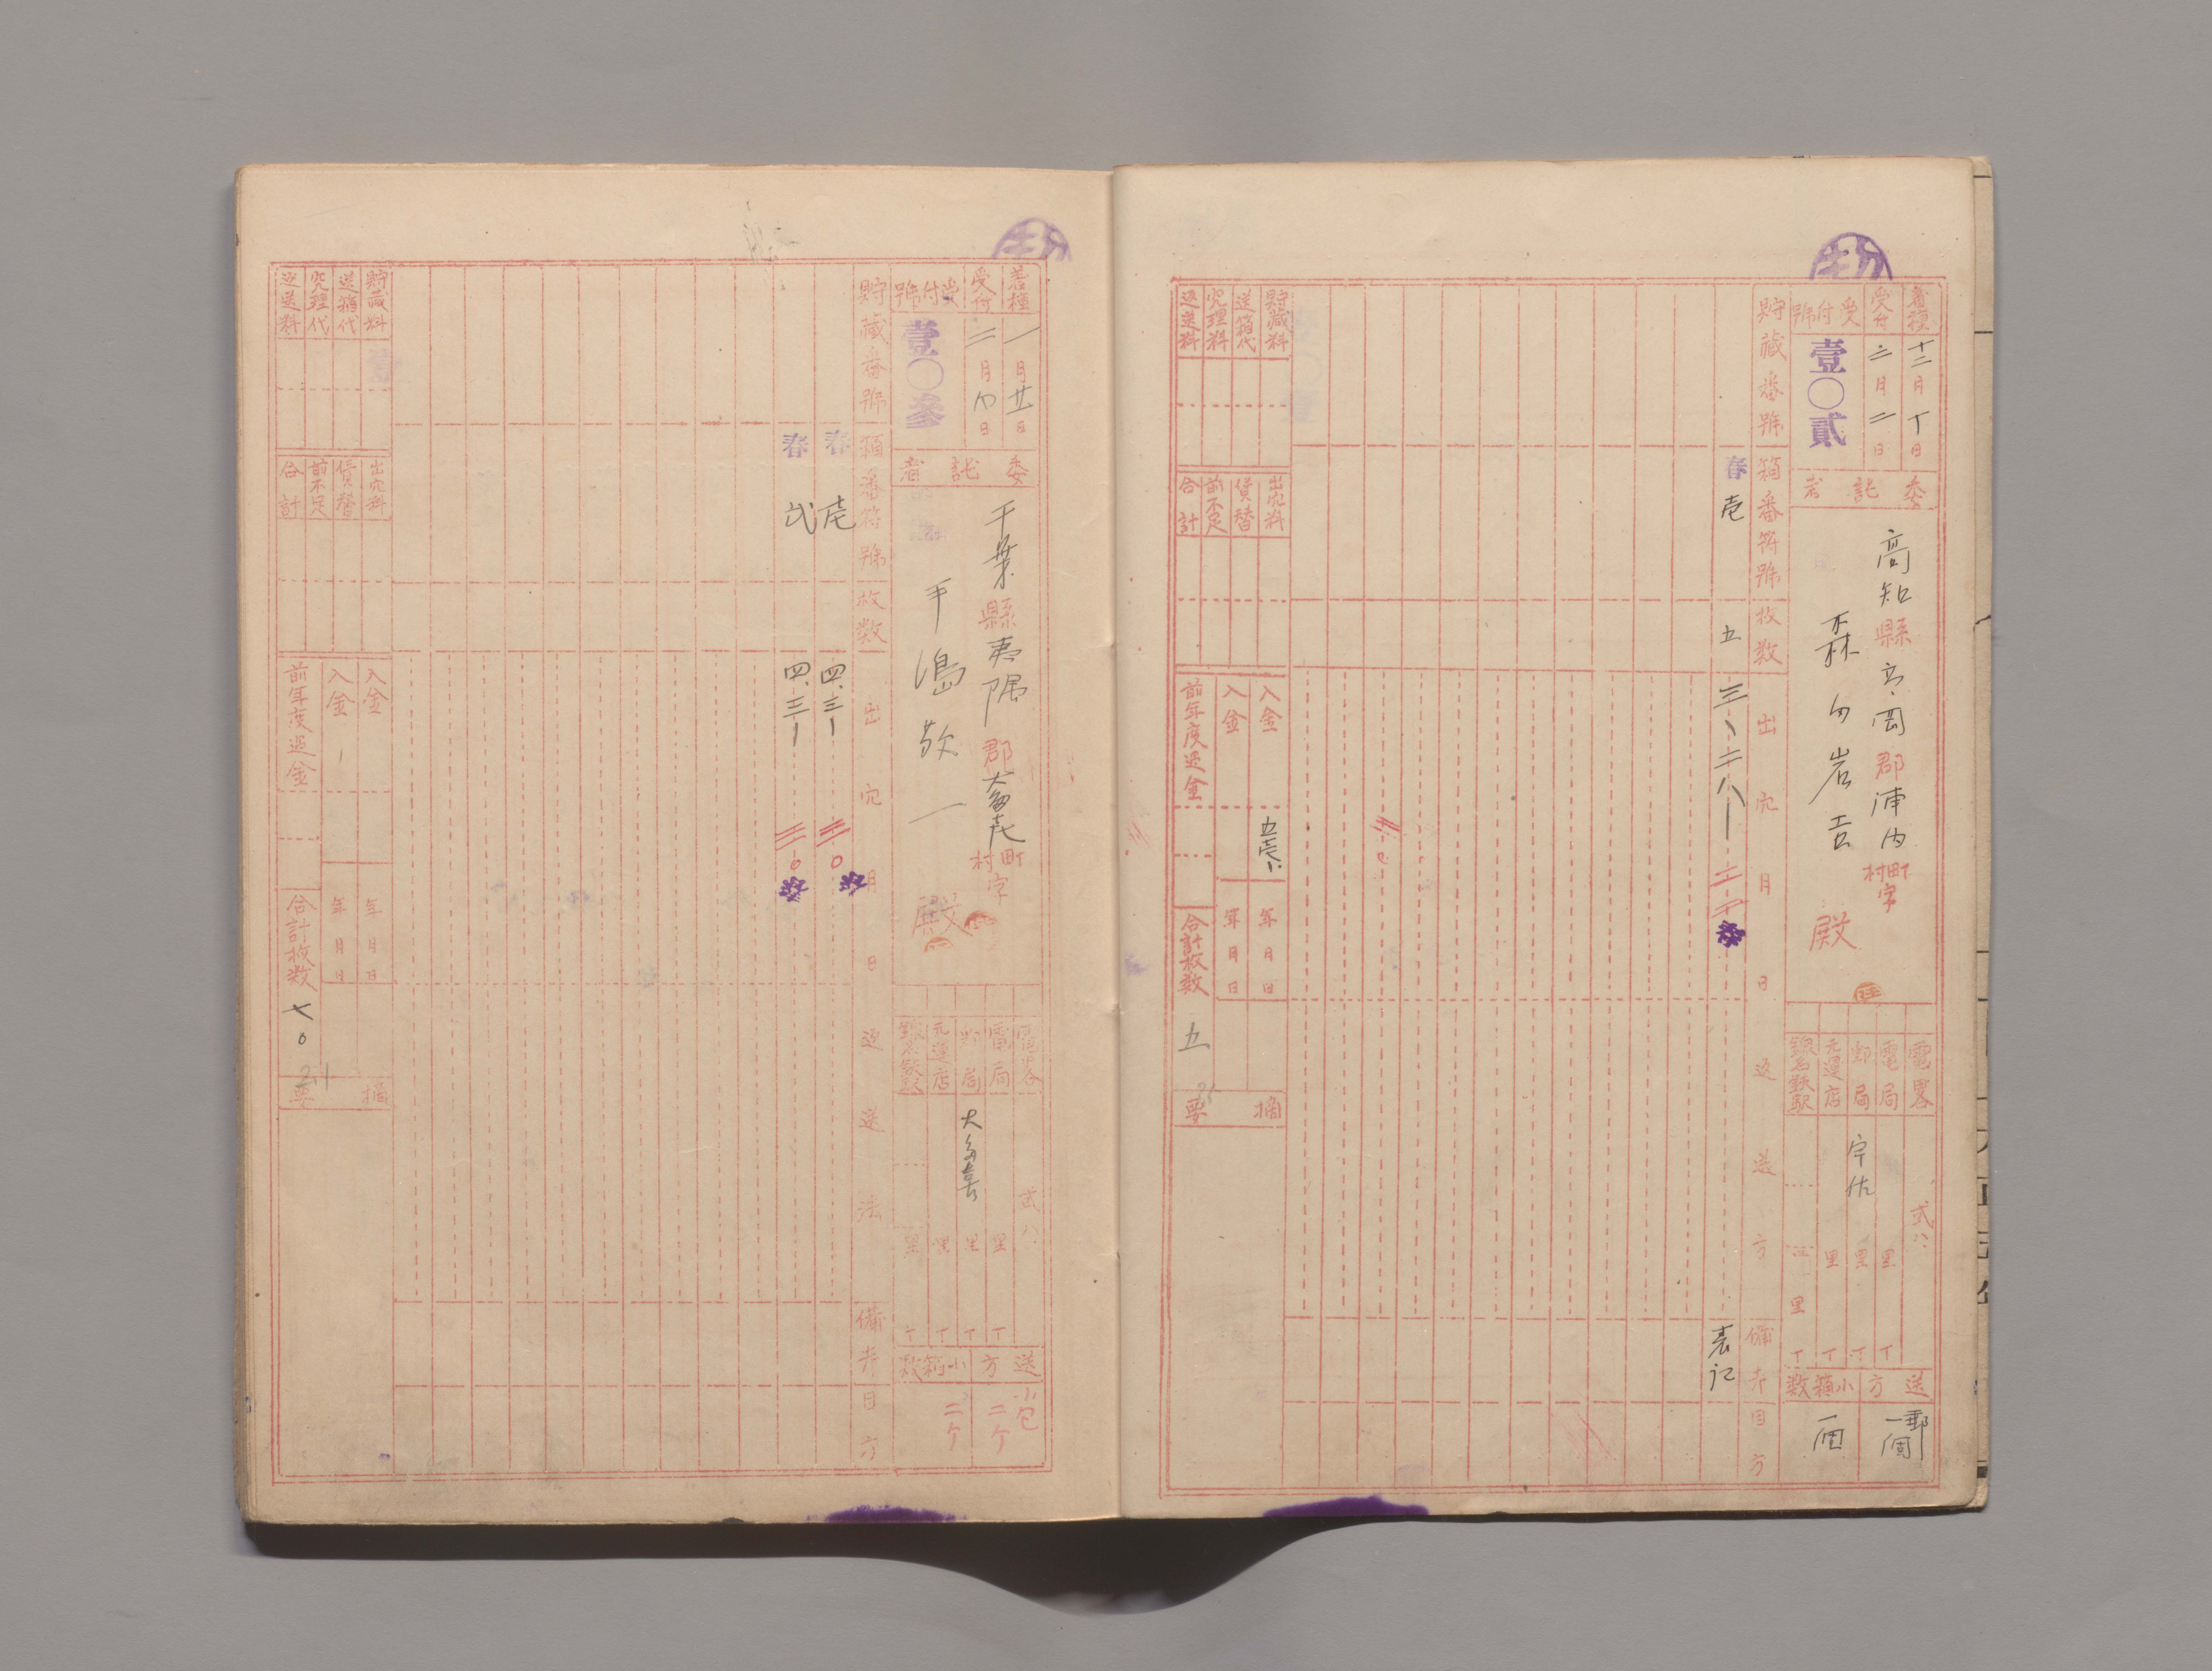 着種
十二月丁日
受付
二月二日
受付號
壹〇貳
委託者
高知縣高岡郡浦内
町村字
森勿岩吉
殿
電畧
電局
郵局
宇佐
元運店
線名鉄駅
里
里
里
里
送方
郵一個
小箱数
一個
貯藏番號
箱番符號
枚数
出穴月日
返送方
備弁
目方
春壱
五
三、二八
表記
貯藏料
送箱代
究理料
返送料
出穴料
債替
前不足
合計
入金
年月日
入金
年月日
前年度過金
合計枚数
五
摘要
着種
一月廿一日
受付
二月八日
受付號
壹〇參
委託者
千葉縣夷隅郡大多喜
町村字
手嶋敬一
殿
電局
郵局
大多喜
元運店
線名鉄駅
里
里
里
里
送方
小包
二ケ
小箱数
二ケ
貯藏番號
箱番符號
枚数
出穴月日
返送法
備弁
目方
春壱
四、三
春弍
四、三
貯藏料
送箱代
究理代
返送料
出穴料
債替
前不足
合計
入金
年月日
入金
年月日
前年度過金
合計枚数
七〇
摘要
21